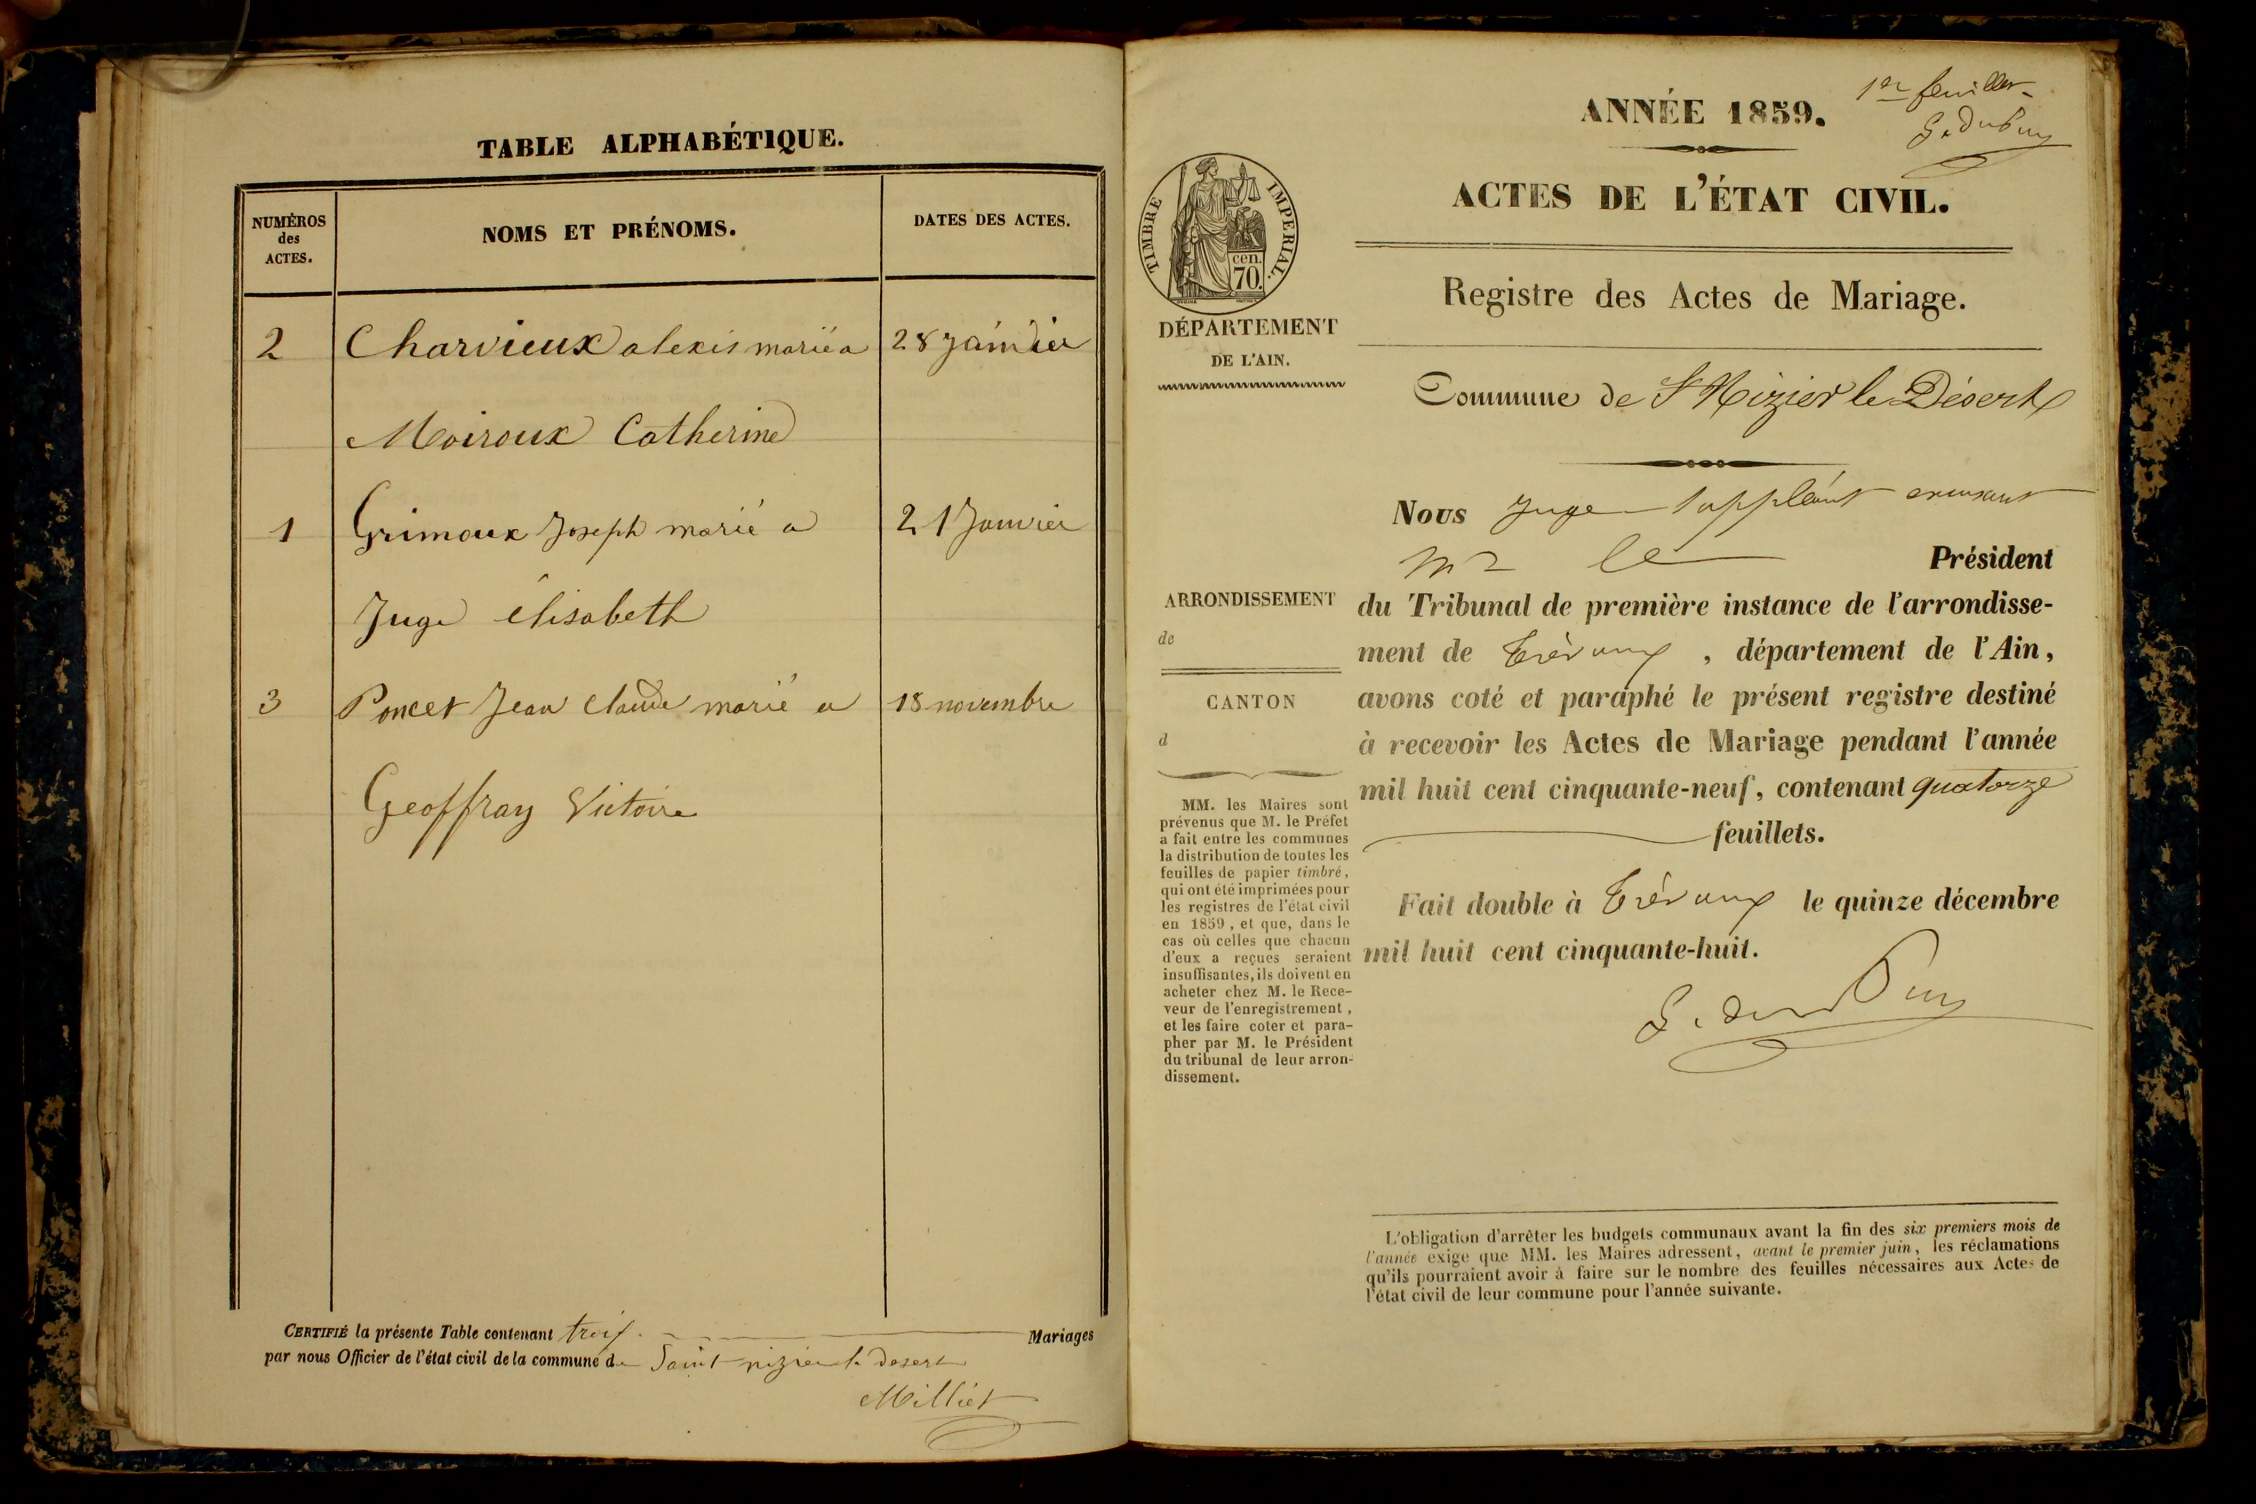 TABLE ALPHABÉTIQUE.
NUMÉROS
des
ACTES.
NOMS ET PRÉNOMS.
DATES DES ACTES.
2 Charvieux alexis marié a 28 janvier
Moiroux Catherine
1 Grimoux Joseph marié a 21 Janvier
Juge élisabeth
3 Poncet Jean claude marié a 18 novembre
Geoffray Victoire
CERTIFIÉ la présente Table contenant trois Mariages
par nous Officier de l'état civil de la commune de Saint nizier le desert
Milliet
1er feuillet
G. duPuy
ANNÉE 1859.
ACTES DE L'ÉTAT CIVIL.
Registre des Actes de Mariage.
TIMBRE IMPERIAL.
cen.
70.
DÉPARTEMENT
DE L'AIN.
Commune de St Nizier le Désert
Nous Juge Suppléant
mr le Président
du Tribunal de première instance de l'arrondisse-
ment de Trévoux, département de l'Ain,
avons coté et paraphé le présent registre destiné
à recevoir les Actes de Mariage pendant l'année
mil huit cent cinquante-neuf, contenant quatorze
feuillets.
Fait double à Trévoux le quinze décembre
mil huit cent cinquante-huit.
G. duPuy
ARRONDISSEMENT
de
CANTON
d
MM. les Maires sont
prévenus que M. le Préfet
a fait entre les communes
la distribution de toutes les
feuilles de papier timbré,
qui ont été imprimées pour
les registres de l'état civil
en 1859, et que, dans le
cas où celles que chacun
d'eux a reçues seraient
insuffisantes, ils doivent en
acheter chez M. le Rece-
veur de l'enregistrement,
et les faire coter et para-
pher par M. le Président
du tribunal de leur arron-
dissement.
L'obligation d'arrêter les budgets communaux avant la fin des six premiers mois de
l'année exige que MM. les Maires adressent, avant le premier juin, les réclamations
qu'ils pourraient avoir à faire sur le nombre des feuilles nécessaires aux Actes de
l'état civil de leur commune pour l'année suivante.